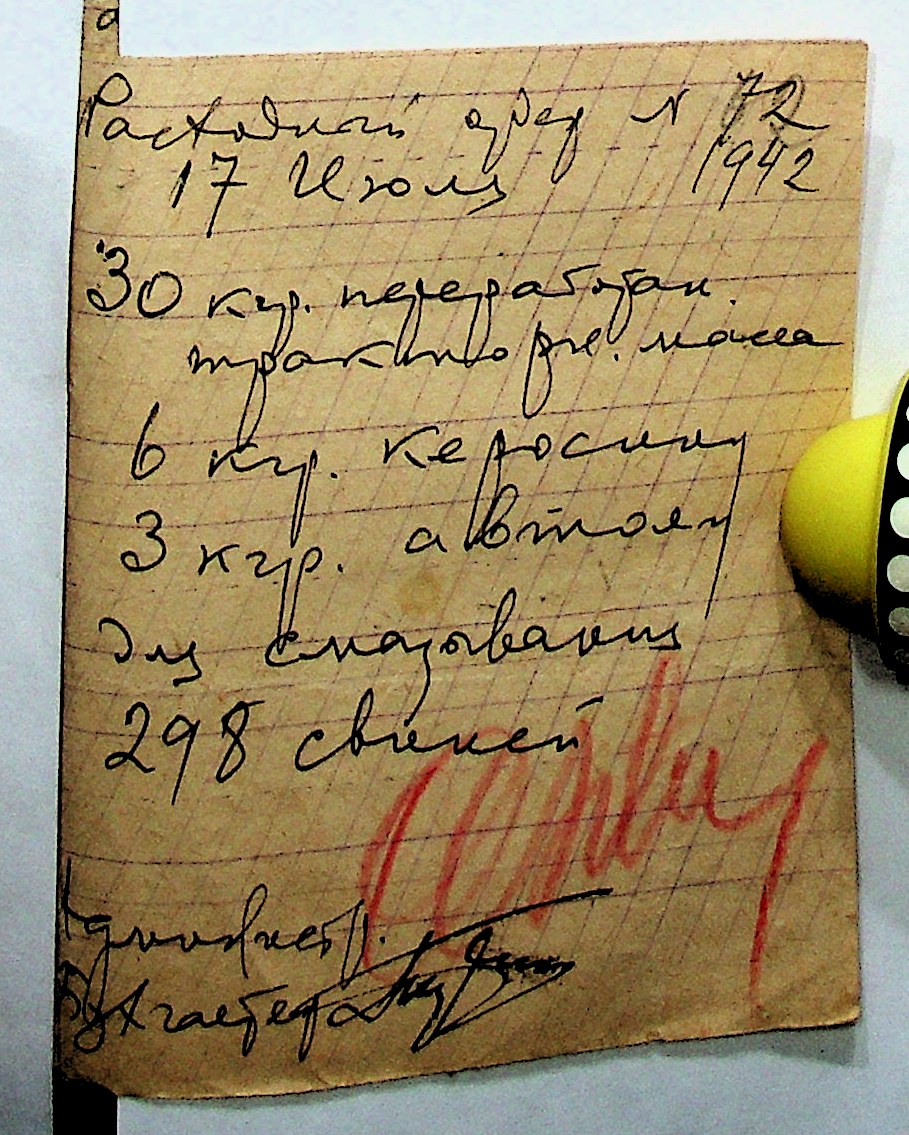 а
Расходный ордер N 72
17 Июля 1942
30 кгр. переработан.
тракторн. масла
6 кгр. керосину
3 кгр. автолу
для смазывания
298 свиней
Бухгалтер